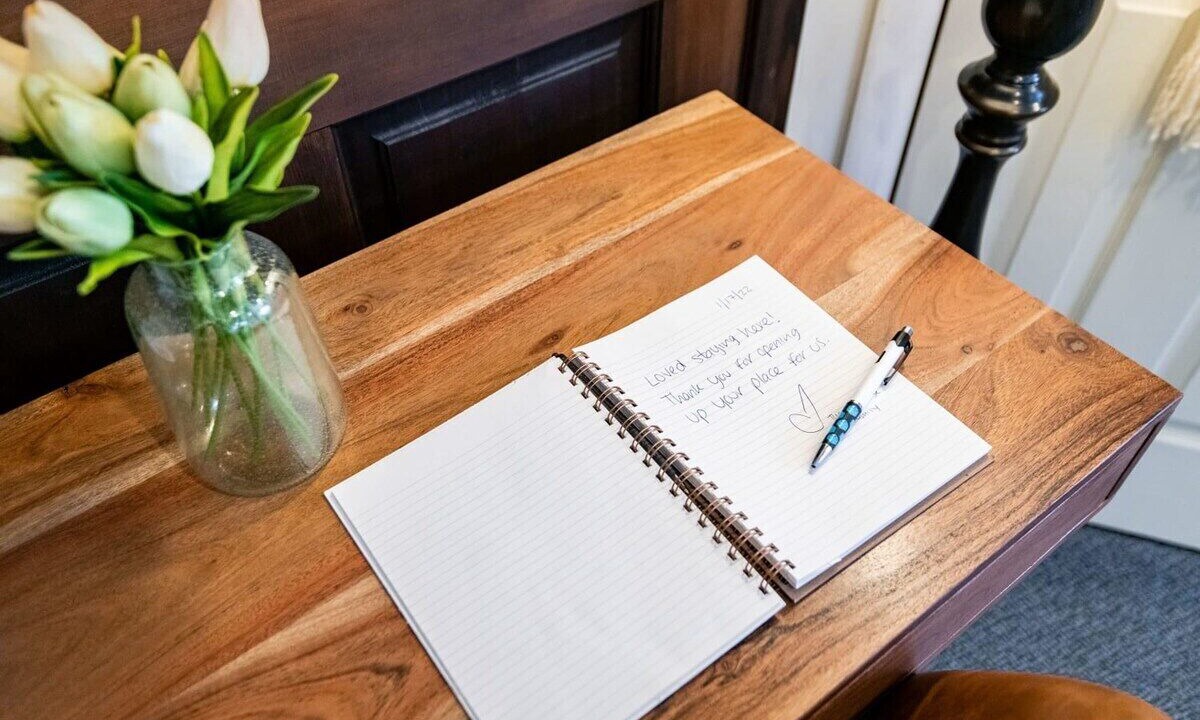 1/17/22
Loved staying here!
Thank you for opening
up your place for us.